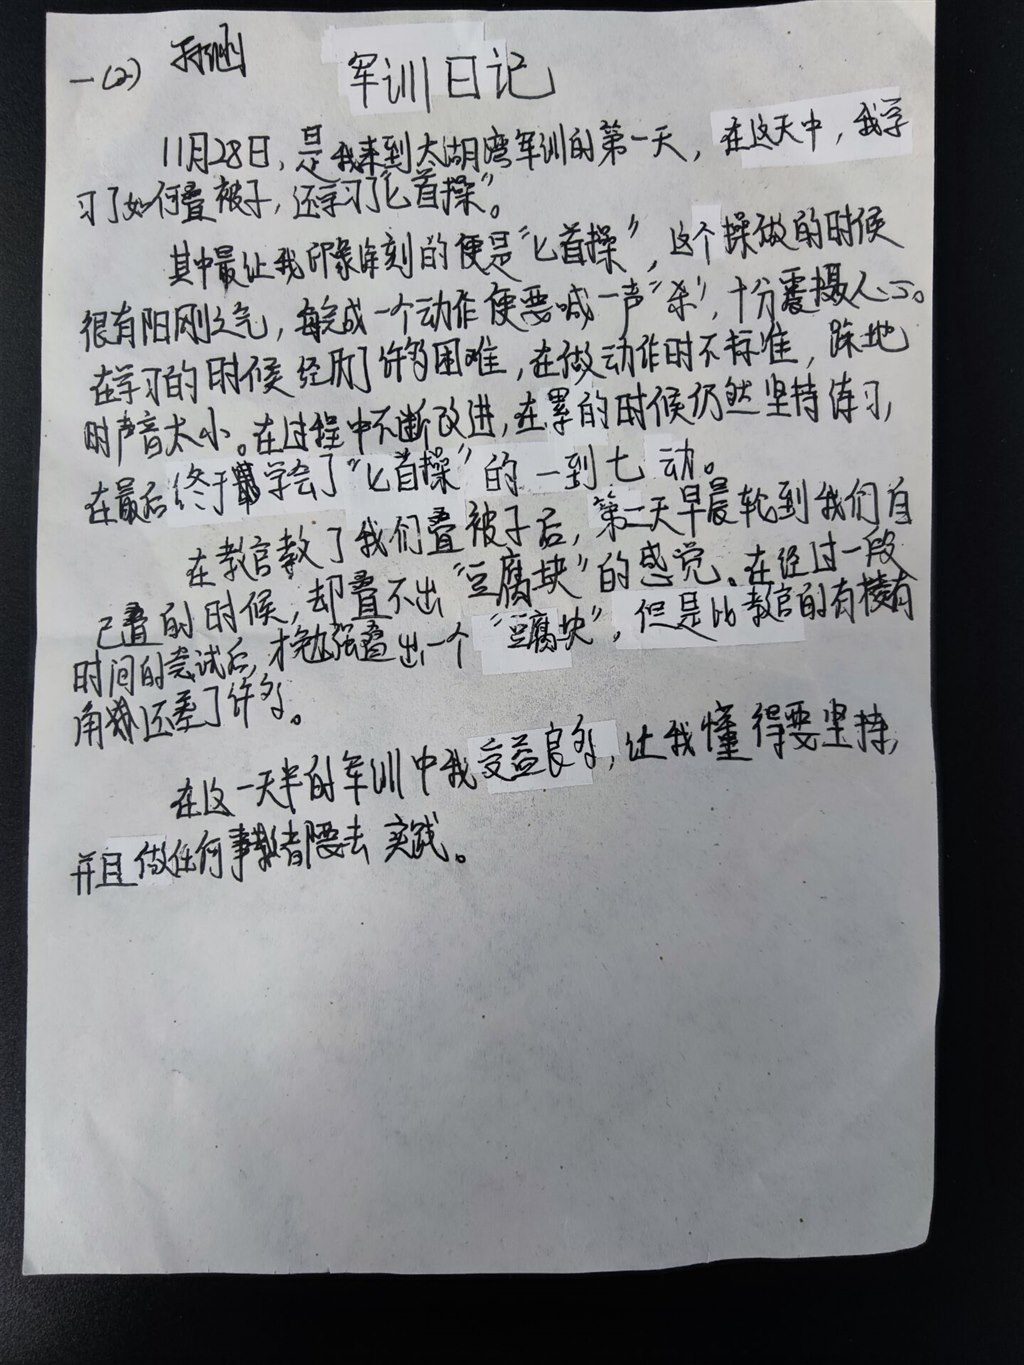 一(2)
军训日记
11月28日，是我来到太湖湾军训的第一天，在这天中，我学
习了如何叠被子，还学习了“匕首操”。
其中最让我印象深刻的便是“匕首操”，这个操做的时候
很有阳刚之气，每完成一个动作便要喊一声“杀”，十分震摄人心。
在学习的时候经历了许多困难，在做动作时不标准，跺地
时声音太小。在过程中不断改进，在累的时候仍然坚持练习，
在最后终于学会了“匕首操”的一到七动。
在教官教了我们叠被子后，第二天早晨轮到我们自
己叠的时候，却叠不出“豆腐块”的感觉。在经过一段
时间的尝试后，才勉强叠出一个“豆腐块”，但是比教官的有棱有
角还差了许多。
在这一天半的军训中我受益良多，让我懂得要坚持，
并且做任何事都要去实践。